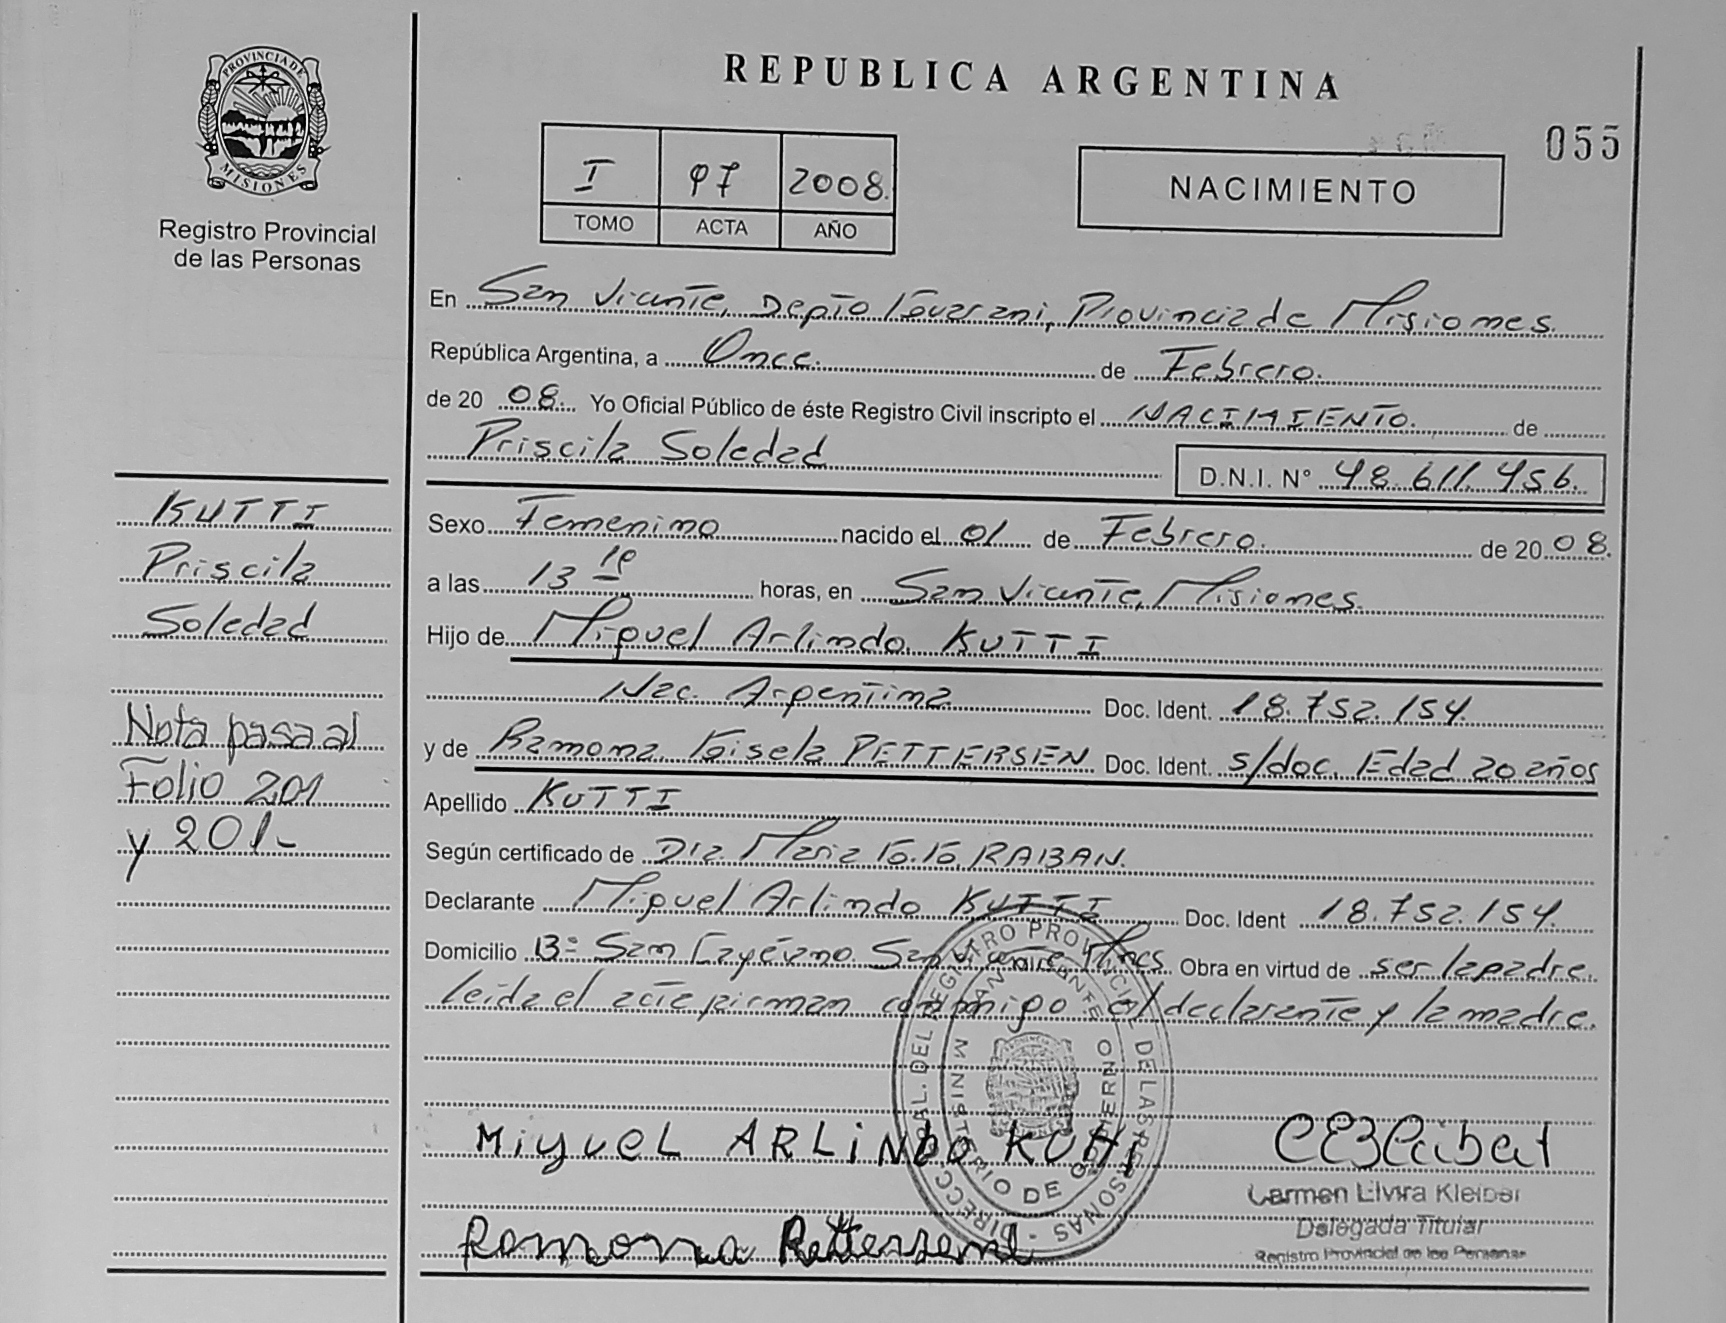 PROVINCIA DE
MISIONES
Registro Provincial
de las Personas
REPUBLICA ARGENTINA
055
I 97 2008.
TOMO ACTA AÑO
NACIMIENTO
En San Vicente, Depto Guarani, Provincia de Misiones.
República Argentina, a Once. de Febrero.
de 20 08. Yo Oficial Público de éste Registro Civil inscripto el NACIMIENTO. de
Priscila Soledad
D.N.I. N° 48.611.456.
Sexo Femenino nacido el 01 de Febrero. de 20 08.
a las 13 10 horas, en San Vicente, Misiones.
Hijo de Miguel Arlindo KUTTI
Nac. Argentina Doc. Ident. 18.752.154.
y de Ramona Gisela PETTERSEN Doc. Ident. s/doc. Edad 20 años
Apellido KUTTI
Según certificado de Dra. Maria G.G. RABAN.
Declarante Miguel Arlindo KUTTI Doc. Ident 18.752.154.
Domicilio B° San Cayetano San Vicente Mnes. Obra en virtud de ser la padre.
Leida el acta firman conmigo el declarante y la madre.
KUTTI
Priscila
Soledad
Nota pasa al
Folio 201
y 201-
MiguEL ARLiNDO KUTTi
Ramona Pettersen
DIRECC. GRAL. DEL REGISTRO PROVINCIAL DE LAS PERSONAS
MINISTERIO DE GOBIERNO
Carmen Elvira Kleiber
Delegada Titular
Registro Provincial de las Personas